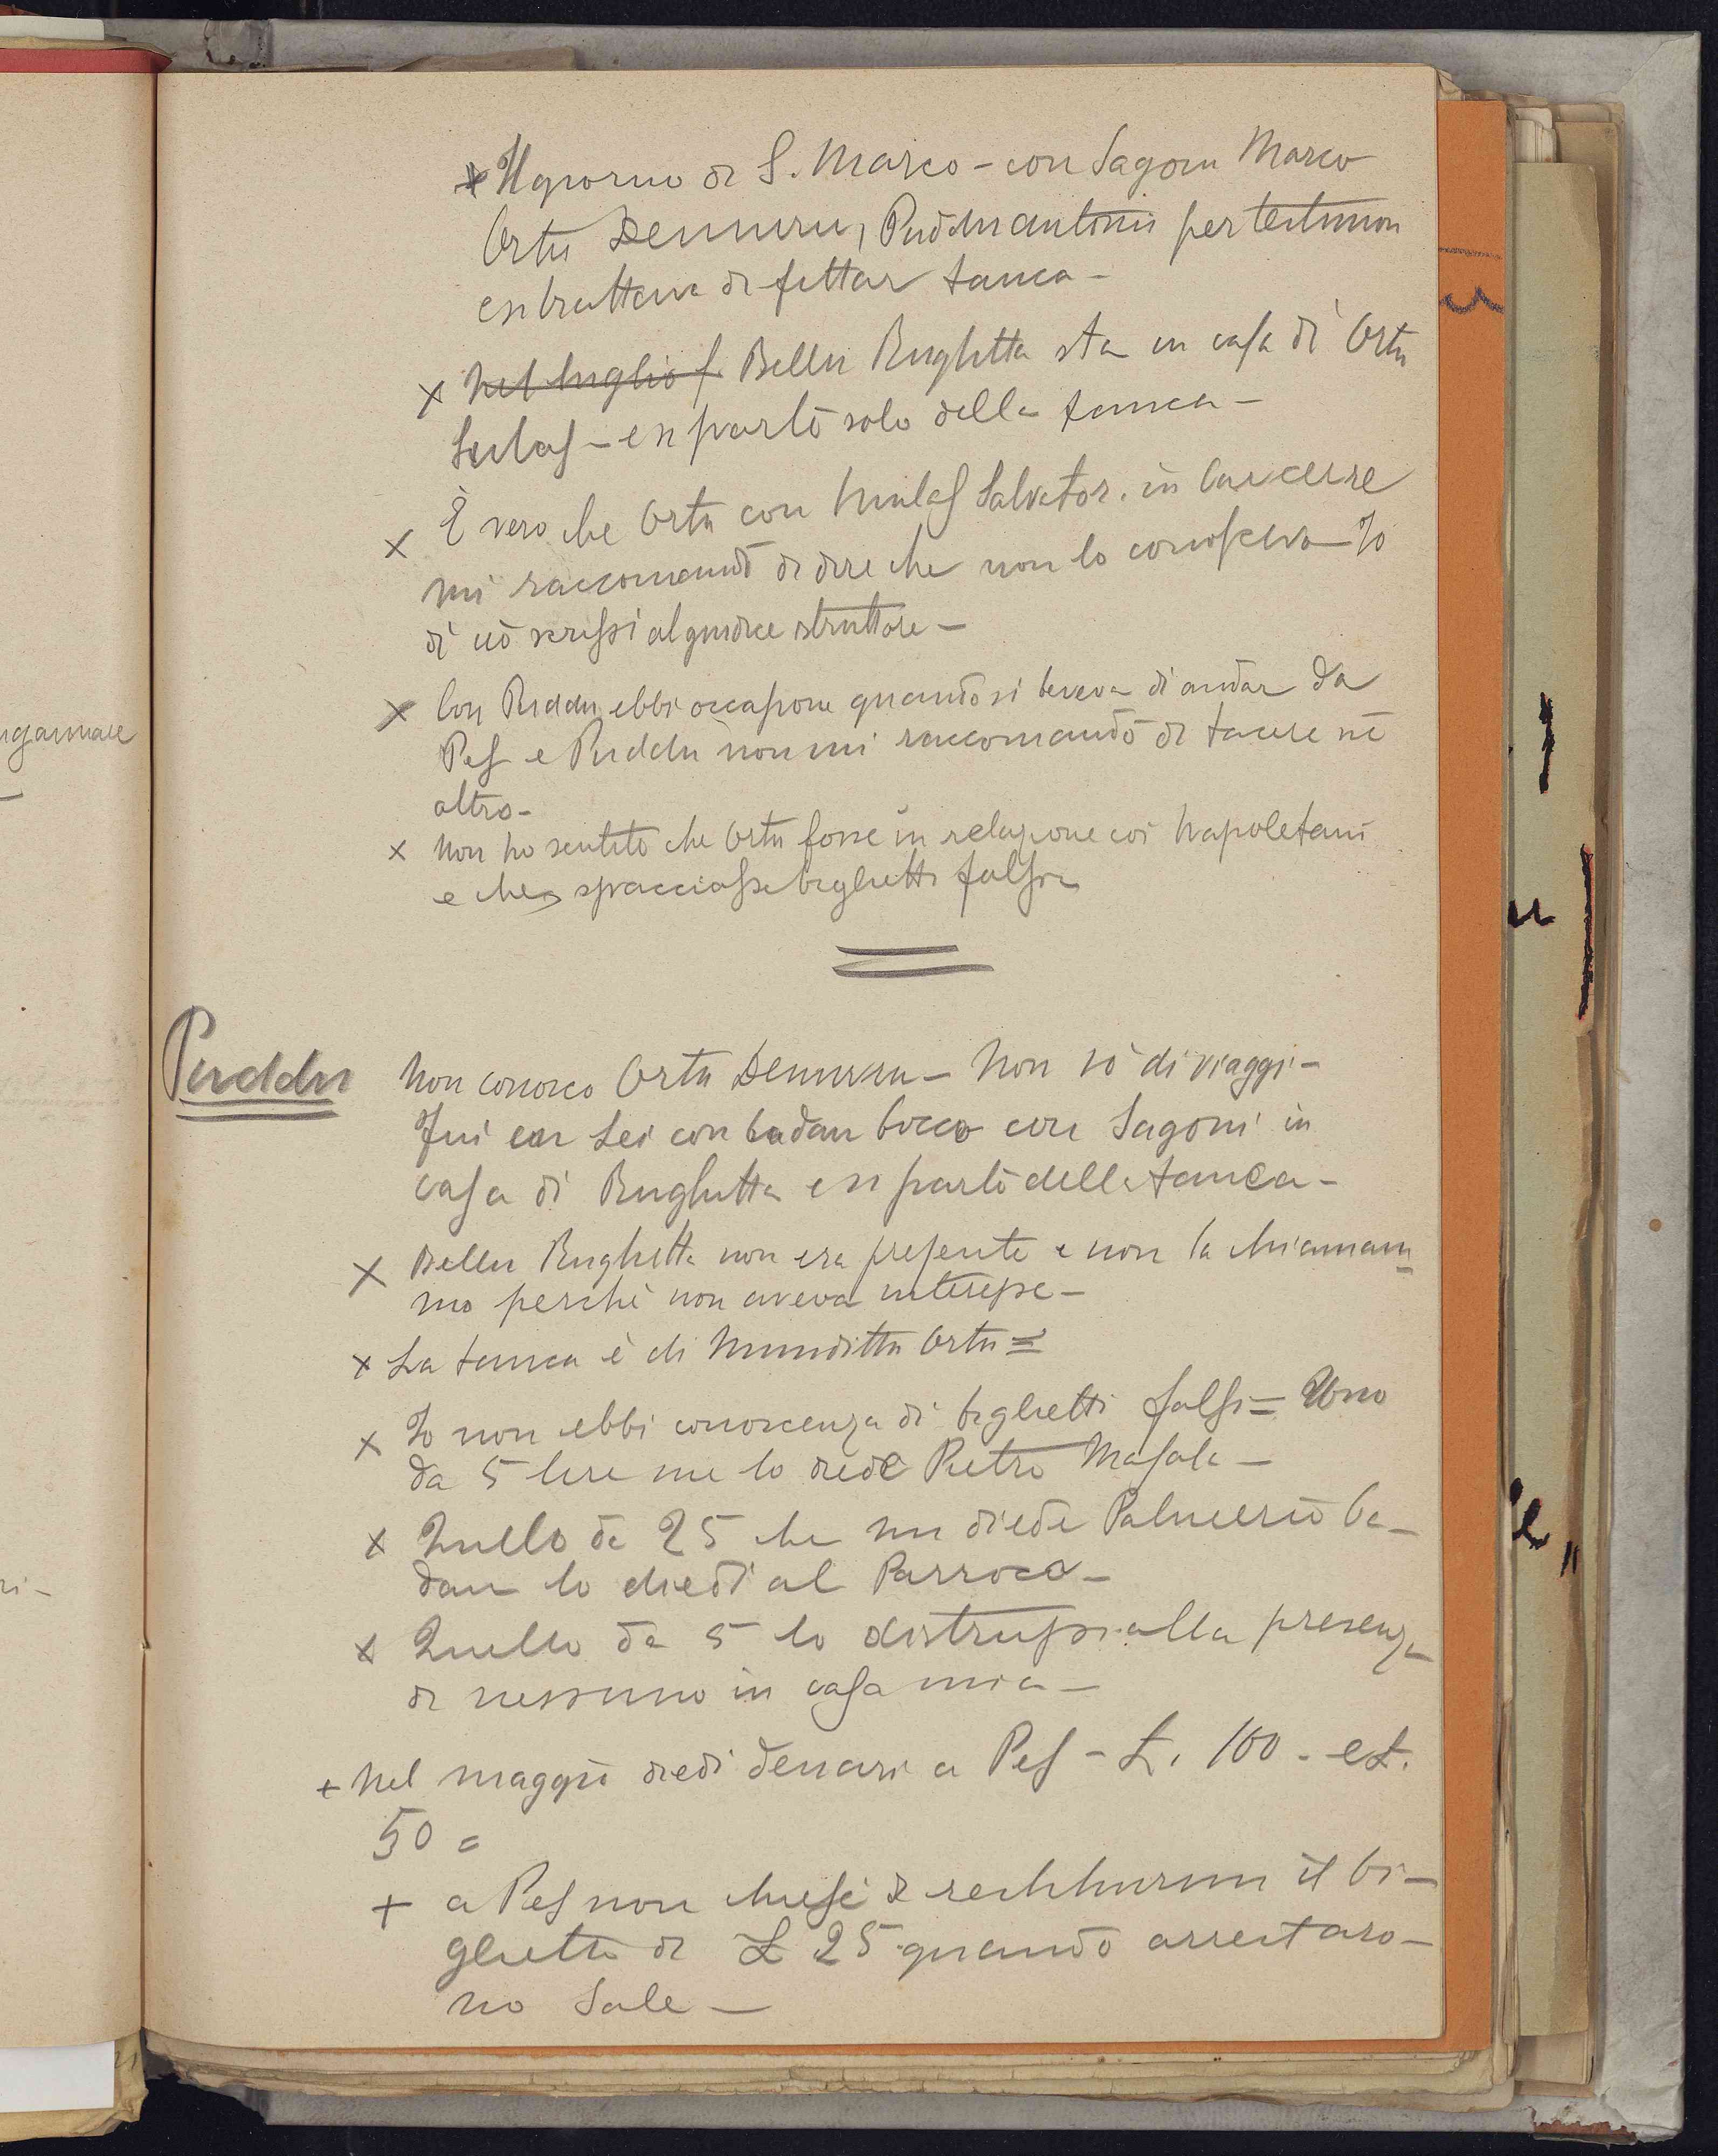 x Il giorno di S. Marco - con Sagoni Marco
Ortu Demuru, Puddu Antonio per testimon
e si trattava di fittar tanca -
x Nel luglio f. Bellu Rughitta sta in casa di Ortu
Sulas - e si parlò solo della tanca -
x È vero che Ortu con Mulas Salvator. in Carcere
mi raccomandò di dire che non lo conosceva Io
di ciò scrissi al giudice istruttore -
x Con Puddu ebbi occasione quando si beveva di andar da
Pes e Puddu non mi raccomandò di tacere nè
altro -
x Non ho sentito che Ortu fosse in relazione coi Napoletani
e che spacciasse biglietti falsi
Puddu
Non conosco Ortu Demuru - Non sò di viaggi -
Fui con Lei con Cadau Cocco con Sagoni in
casa di Rughitta e si parlò della tanca -
x Bellu Rughitta non era presente e non la chiamam
mo perchè non aveva interesse -
x La tanca è di Munditta Ortu =
x Io non ebbi conoscenza di biglietti falsi = Uno
da 5 lire me lo diede Pietro Masala -
x Quello da 25 che mi diede Palmerio Ca-
dau lo diedi al Parroco -
x Quello da 5 lo distrussi alla presenza
di nessuno in casa mia -
+ Nel maggio diedi denari a Pes - L. 100 - e L.
50 =
+ a Pes non chiesi se restituirmi il bi-
glietto di L 25 quando arrestaro-
no Sale -
ngannare